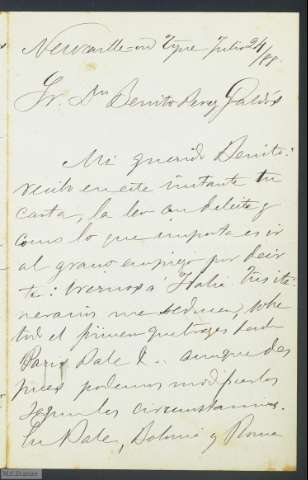 Newcastle on Tyne Julio 24/88.
Sr. Dn Benito Perez Galdós
Mi querido Benito:
recibo en este instante tu
carta, la leo con deleite y
como lo que importa es ir
al grano empiezo por decir
te: iremos a Italia. Tres iti
nerarios me seducen, sobre
todo el primero que traza desde
Paris Bale &.. aunque des
pues podemos modificarlos
segun las circunstancias.
En Bale, Bolonia y Roma